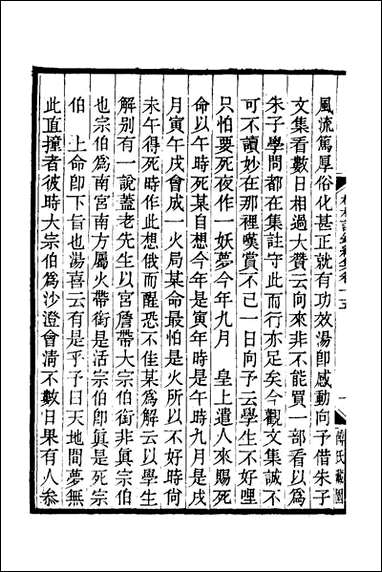 風流篤厚俗化甚正就有功效湯卽感動向予借朱子
文集看數日相過大贊云向來非不能買一部看以為
朱子學問都在集註守此而行亦足矣今觀文集誠不
可不讀妙在那裡嘆賞不已一日向予云學生不好哩
只怕要死夜作一妖夢今年九月　皇上遣人來賜死
命以午時死某自想今年是寅年時是午時九月是戌
月寅午戌會成一火局某命最怕是火所以不好時尙
未午得死時作此想俄而醒恐不佳某為解云以學生
解別有一說蓋老先生以宮詹帶大宗伯銜非眞宗伯
也宗伯為南宮南方屬火帶銜是活宗伯卽眞是死宗
伯　上命卽下旨也湯喜云有是乎予曰天地間夢無
此直撞者彼時大宗伯為沙澄會清不數日果有人叅